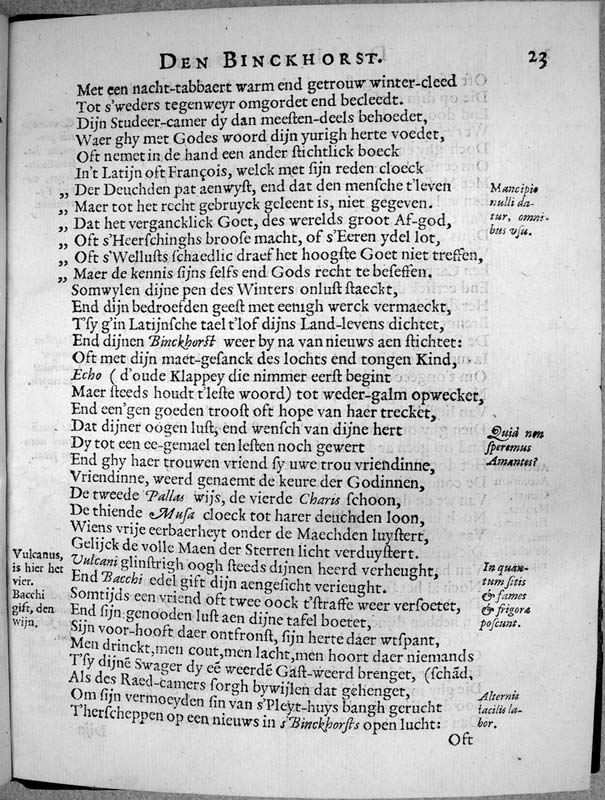 DEN BINCKHORST. 23
Met een nacht-tabbaert warm end getrouw winter-cleed
Tot s'weders tegenweyr omgordet end becleedt.
Dijn Studeer-camer dy dan meesten-deels behoedet,
Waer ghy met Godes woord dijn yurigh herte voedet,
Oft nemet in de hand een ander stichtlick boeck
In't Latijn oft François, welck met sijn reden cloeck
„ Der Deuchden pat aenwyst, end dat den mensche t'leven
„ Maer tot het recht gebruyck geleent is, niet gegeven.
„ Dat het vergancklick Goet, des werelds groot Af-god,
„ Oft s'Heerschinghs broose macht, of s'Eeren ydel lot,
„ Oft s'Wellusts schaedlic draef het hoogste Goet niet treffen,
„ Maer de kennis sijns selfs end Gods recht te beseffen.
Mancipio
nulli da-
tur, omni-
bus usu.
Somwylen dijne pen des Winters onlust staeckt,
End dijn bedroefden geest met eenigh werck vermaeckt,
T'sy g'in Latijnsche tael t'lof dijns Land-levens dichtet,
End dijnen Binckhorst weer by na van nieuws aen stichtet:
Oft met dijn maet-gesanck des lochts end tongen Kind,
Echo (d'oude Klappey die nimmer eerst begint
Maer steeds houdt t'leste woord) tot weder-galm opwecket,
End een'gen goeden troost oft hope van haer trecket,
Dat dijner oogen lust, end wensch van dijne hert
Dy tot een ee-gemael ten lesten noch gewert
End ghy haer trouwen vriend sy uwe trou vriendinne,
Quid non
speremus
Amantes?
Vriendinne, weerd genaemt de keure der Godinnen,
De tweede Pallas wijs, de vierde Charis schoon,
De thiende Musa cloeck tot harer deuchden loon,
Wiens vrije eerbaerheyt onder de Maechden luystert,
Gelijck de volle Maen der Sterren licht verduystert.
Vulcani glinstrigh oogh steeds dijnen heerd verheught,
End Bacchi edel gift dijn aengesicht verieught.
Vulcanus,
is hier het
vier.
Bacchi
gift, den
wijn.
Somtijds een vriend oft twee oock t'straffe weer versoetet,
End sijn genooden lust aen dijne tafel boetet,
Sijn voor-hooft daer ontfronst, sijn herte daer wtspant,
In quan-
tum sitis
& fames
& frigora
poscunt.
Men drinckt, men cout, men lacht, men hoort daer niemands
T'sy dijnē Swager dy eē weerdē Gast-weerd brenget, (schād,
Als des Raed-camers sorgh bywijlen dat gehenget,
Om sijn vermoeyden sin van s'Pleyt-huys bangh gerucht
T'herscheppen op een nieuws in s'Binckhorsts open lucht:
Alternis
facilis la-
bor.
Oft